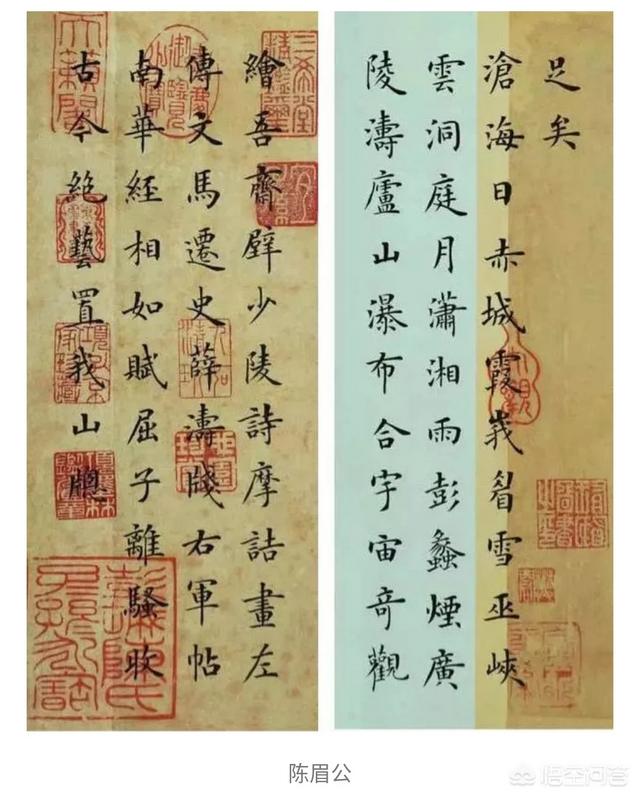 足矣
滄海日赤城霞峩睂雪巫峽
雲洞庭月瀟湘雨彭蠡煙廣
陵濤廬山瀑布合宇宙奇觀
繪吾齋壁少陵詩摩詰畫左
傳文馬遷史薛濤牋右軍帖
南華經相如賦屈子離騷收
古今絕藝置我山牕
三希堂精鑑璽
宜子孫
陈眉公
悟空问答